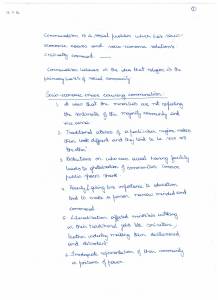 ①
Communalism is a social problem which has socio-
economic causes and socio-economic relations
critically comment
Communalism believes in the idea that religion is the
primary basis of social community
Socio-economic causes causing communalism :
1. A view that the minorities are not respecting
the sentiments of the majority community and
vice versa
2. Traditional attires of a particular region makes
them look different and they tend to be "us vs
the other"
3. Restrictions on who can avail housing facility
leads to of communities
public spaces shared
4. Poverty / giving less importance to education
tend to make a person narrow minded and
communal
5. Liberalization affected minorities working
in their traditional jobs like
leather industry making them disillusioned
and
6. Inadequate representation of their community
in positions of power